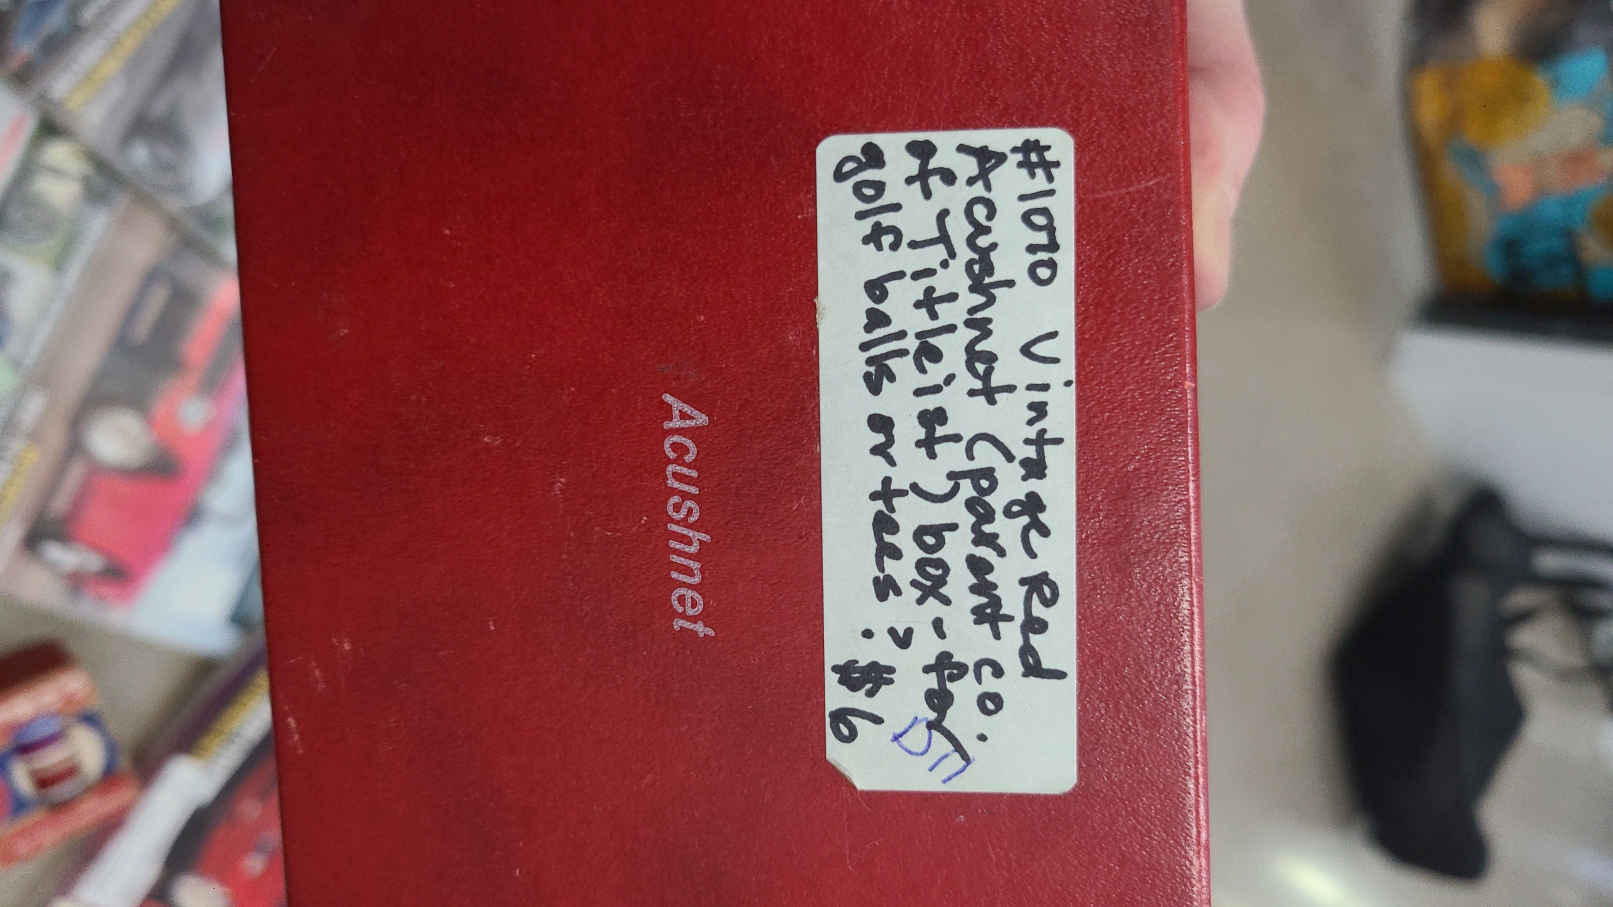 #1070 Vintage Red
Acushnet (parent co.
of Titleist) box - for
golf balls or tees? $6
DM
Acushnet